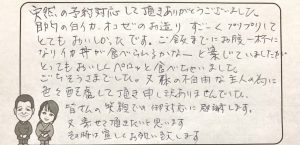 突然の予約対応して頂きありがとうございました。
白イカ、オコゼのお造り すごくプリプリして
とてもおいしかったです。ご飯までにお腹一杯に
なりイカ丼が食べられないかなーと案じていましたが
とってもおいしくペロッと食べちゃいました。
ごちそうさまでした。又様の不自由な主人の為に
色々配慮して頂き申し訳ありませんでした。
皆さんの笑顔での御対応に感謝します。
又寄せて頂きたいと思います
その時は宜しくお願い致します